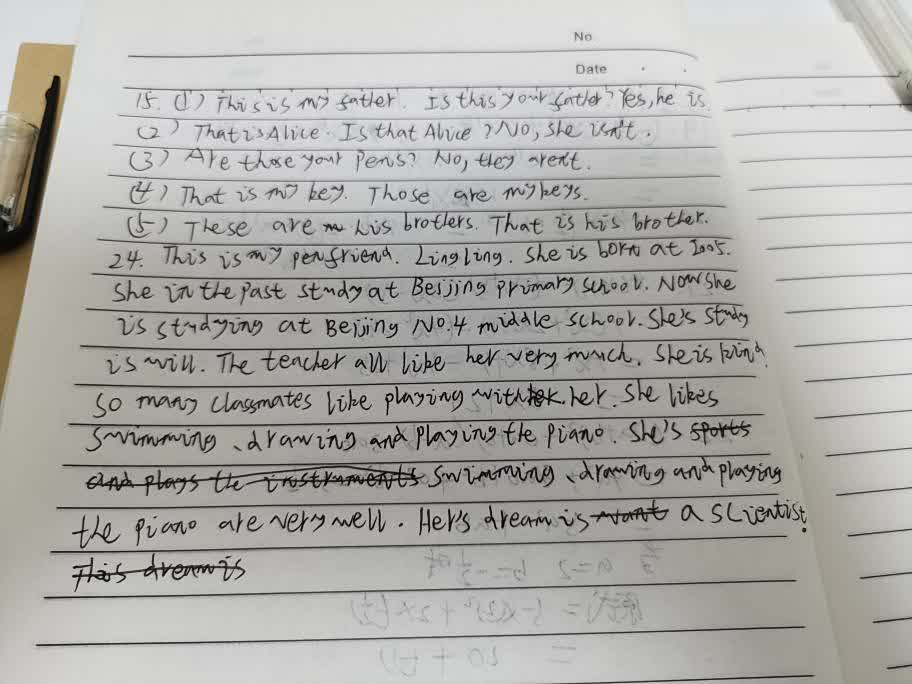 No
Date
15. (1) This is my father. Is this your father? Yes, he is.
(2) That is Alice. Is that Alice? No, she isn't.
(3) Are those your pens? No, they aren't.
(4) That is my key. Those are my keys.
(5) These are his brotlers. That is his brother.
24. This is my penfriend. Lingling. She is born at 2005.
She in the past study at Beijing primary school. Now she
is studying at Beijing No.4. middle school. She's study
is will. The teacher all like her very much. She is kind
so many classmates like playing with her. She likes
Swimming、drawing and playing the piano. She's sports
and plays the instruments swimming、drawing and playing
the piano are very well. Her's dream is want a scientist.
This dream is
a=2 b=-
=